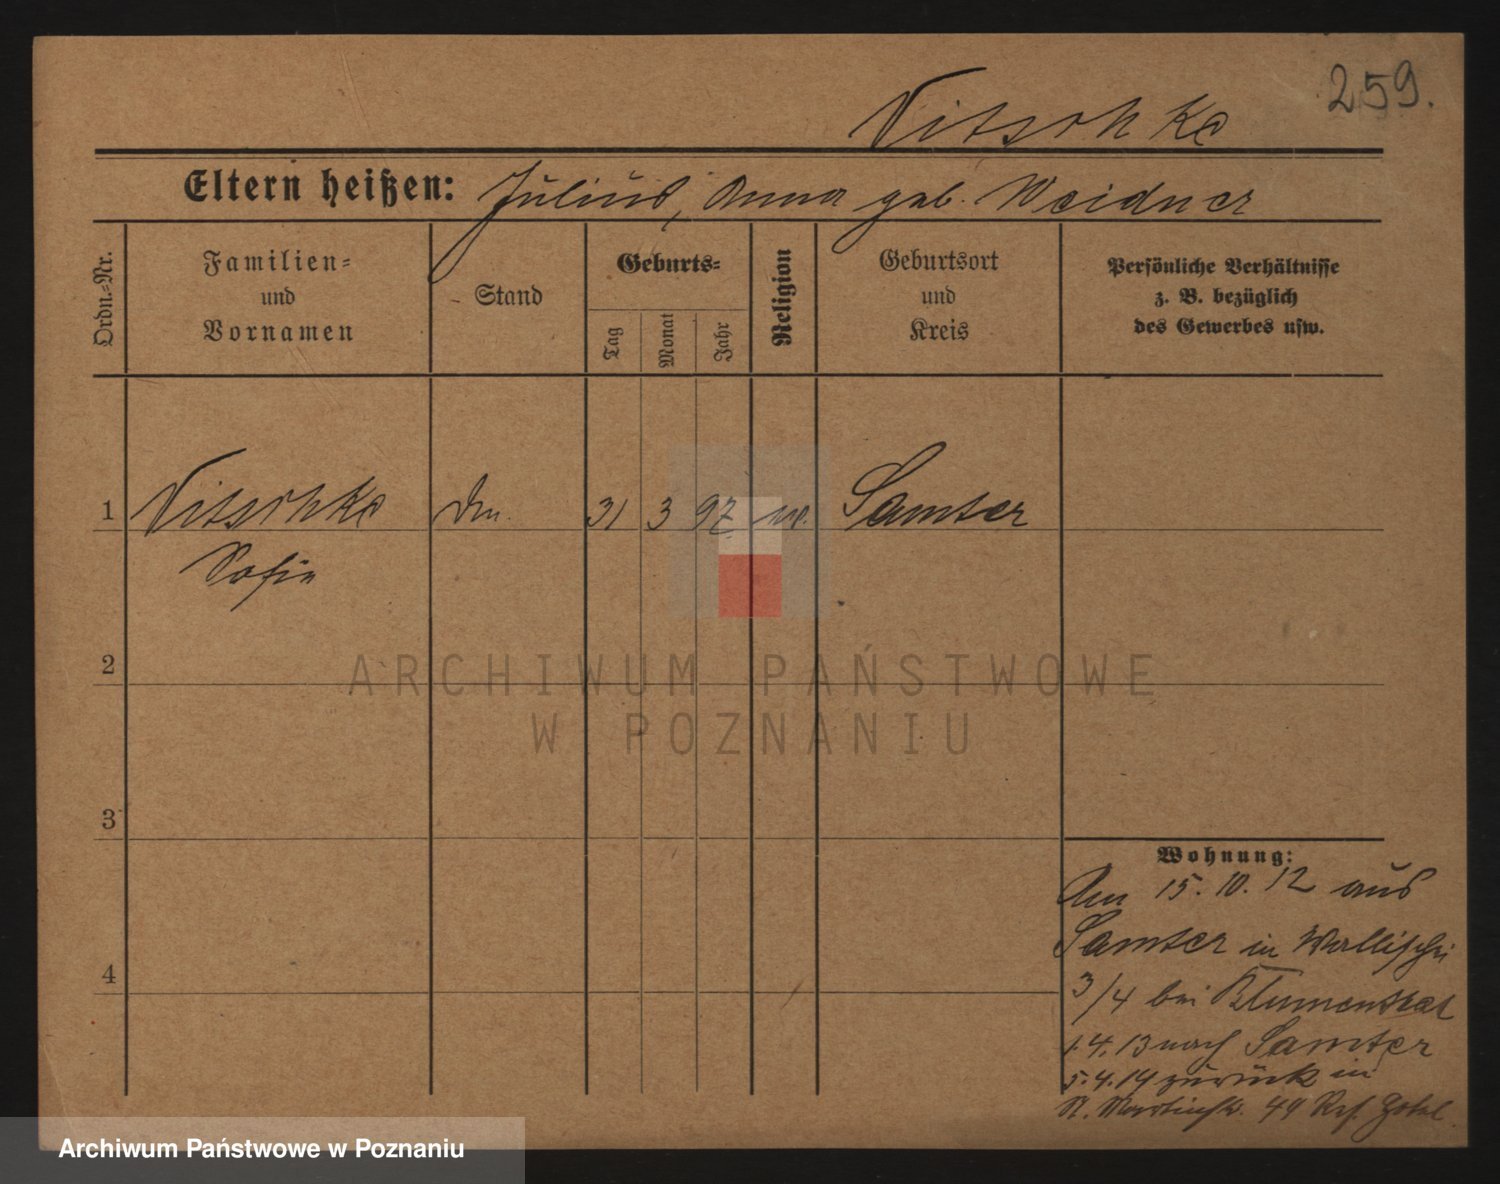 259.
Nitschke
Eltern heißen: Julius, Anna geb. Weidner
Ordn.-Nr.
Familien-
und
Vornamen
Stand
Geburts-
Tag
Monat
Jahr
Religion
Geburtsort
und
Kreis
Persönliche Verhältnisse
z. B. bezüglich
des Gewerbes usw.
1 Nitschke 31 3 97 Samter
Sofie
2
3
4
Wohnung:
Am 15.10.12 aus
Samter in Wallischei
3/4 bei
1.4.13 nach Samter
5.4.14 zurück in
St. Martinstr. 49
ARCHIWUM PAŃSTWOWE
W POZNANIU
Archiwum Państwowe w Poznaniu